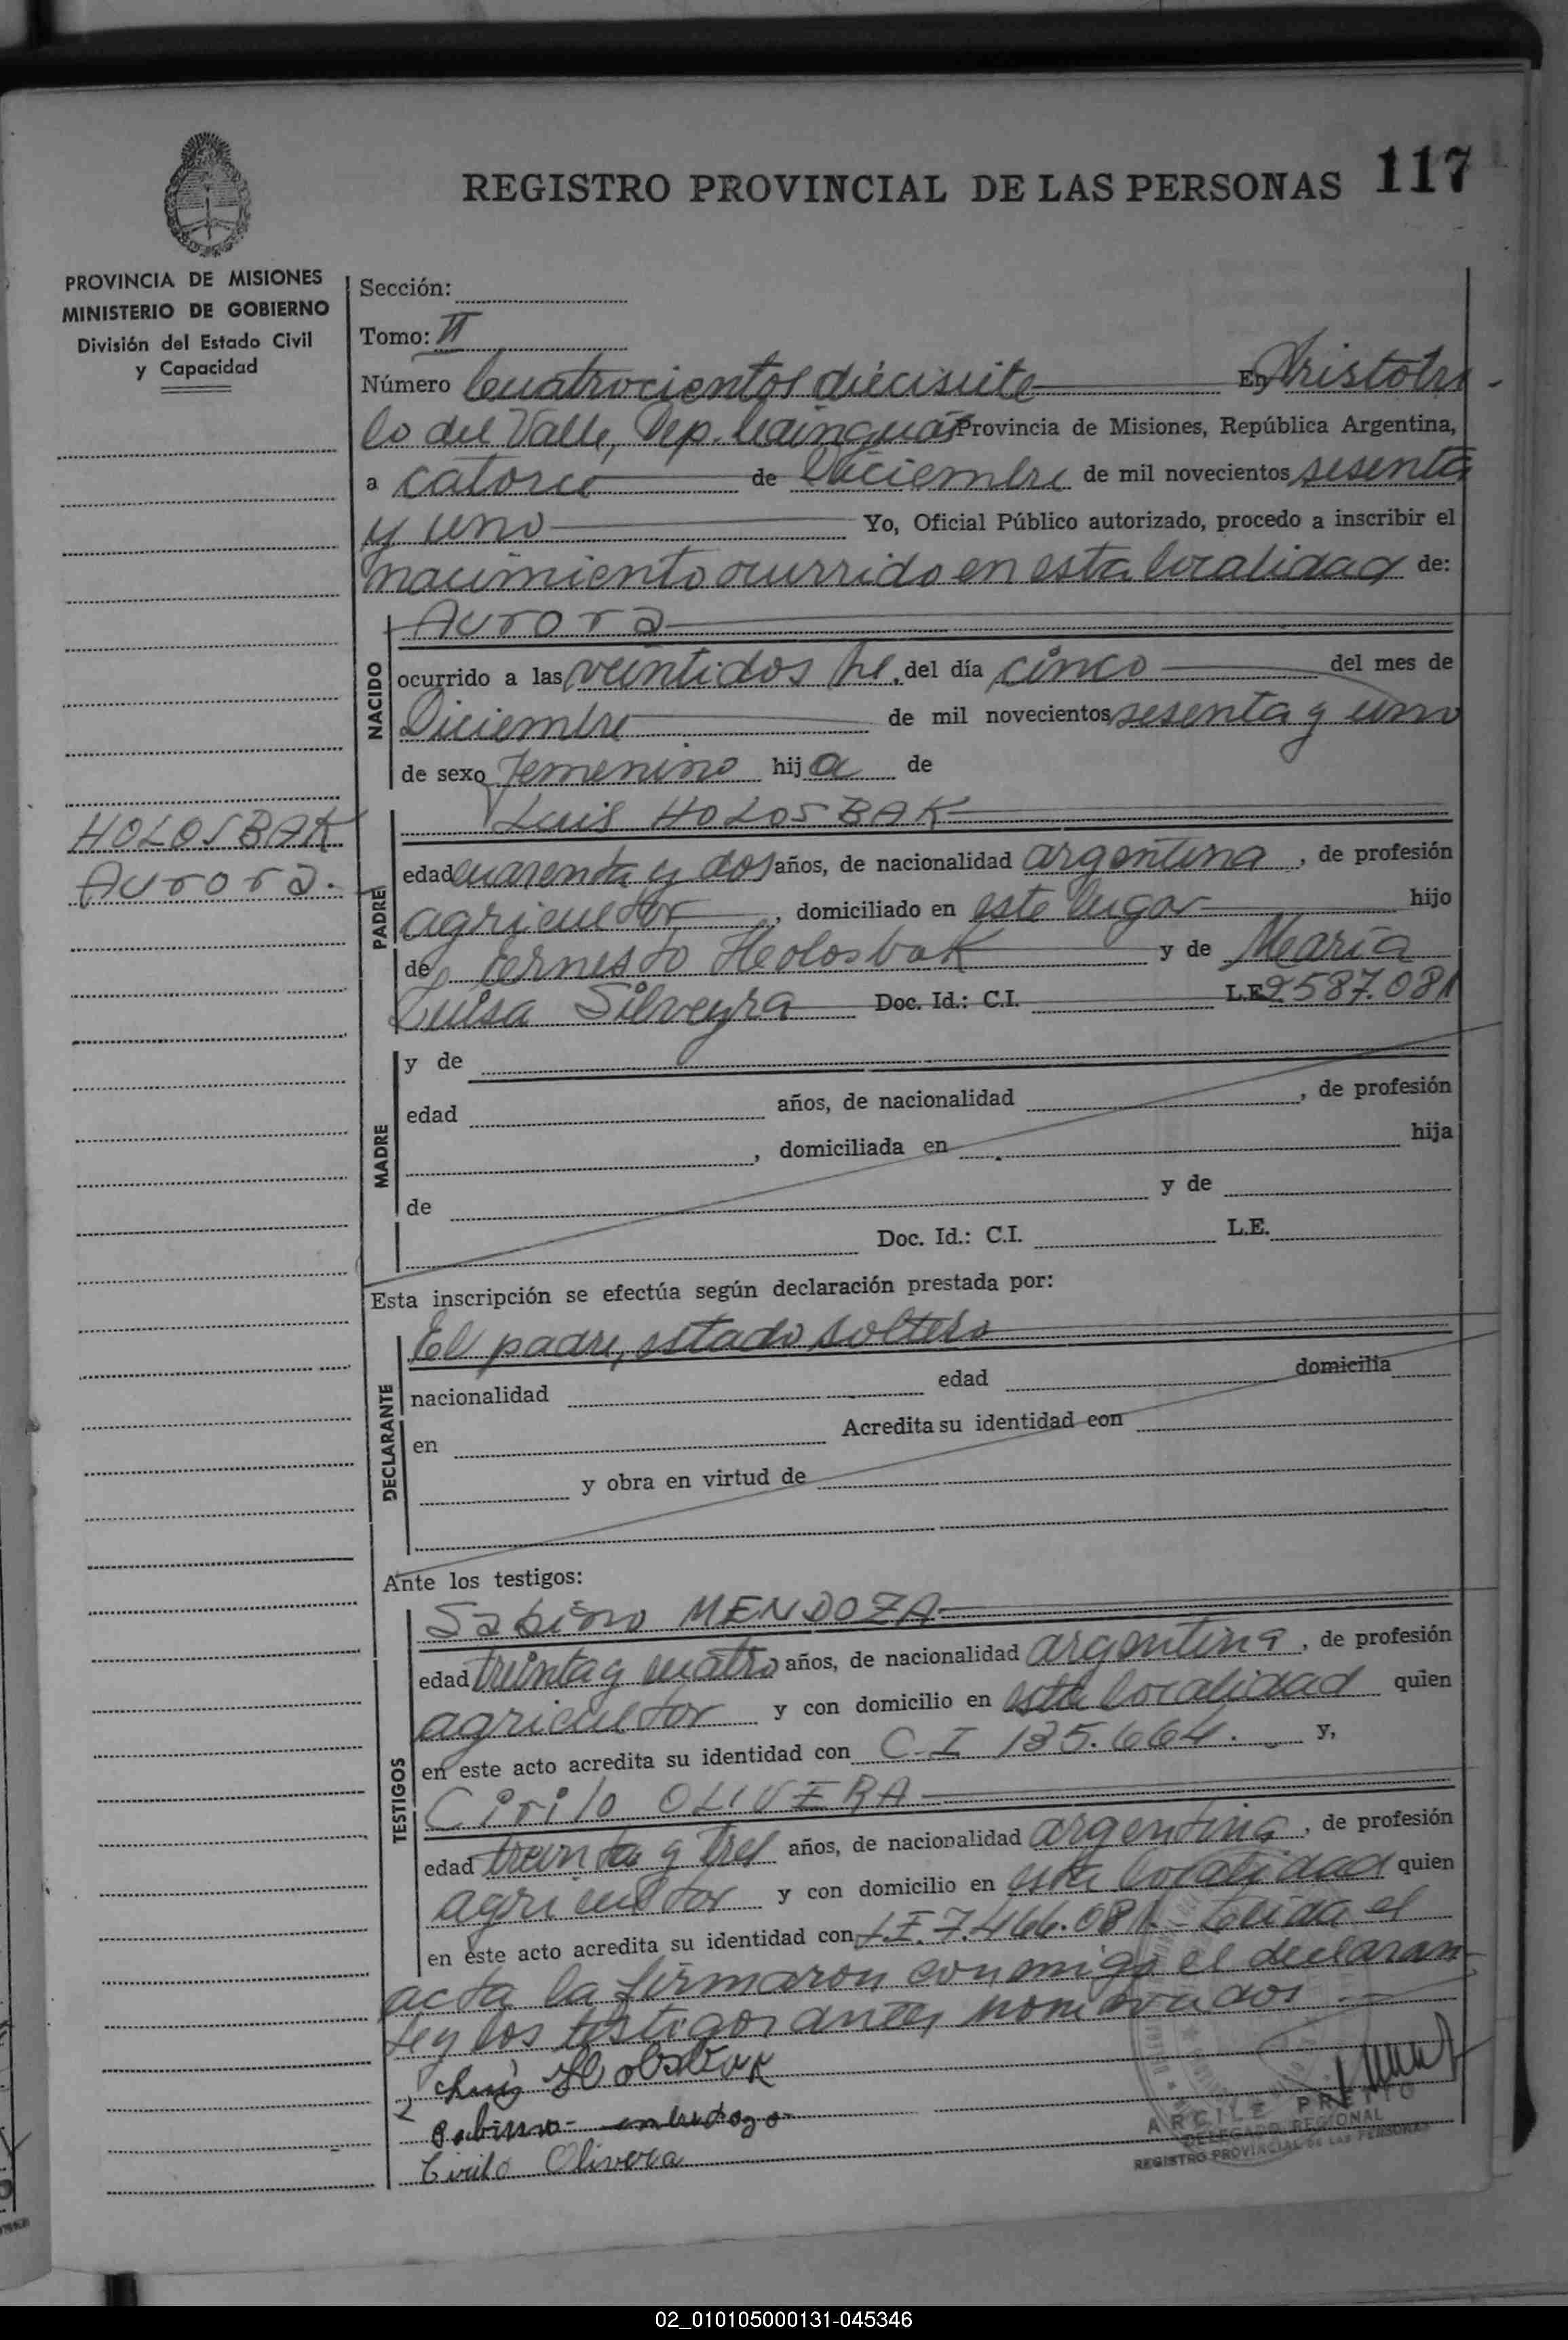 REGISTRO PROVINCIAL DE LAS PERSONAS 117
PROVINCIA DE MISIONES
MINISTERIO DE GOBIERNO
División del Estado Civil
y Capacidad
Sección:
Tomo: II
Número Cuatrocientos diecisiete En Aristóbu
lo del Valle, Dep. Cainguás Provincia de Misiones, República Argentina,
a catorce de Diciembre de mil novecientos sesenta
y uno Yo, Oficial Público autorizado, procedo a inscribir el
nacimiento ocurrido en esta localidad de:
HOLOSBAK
Aurora.
NACIDO
Aurora
ocurrido a las veintidos hs. del día cinco del mes de
Diciembre de mil novecientos sesenta y uno
de sexo Femenino hija de
PADRE
Luis HOLOSBAK
edad cuarenta y dos años, de nacionalidad argentina, de profesión
agricultor, domiciliado en este lugar hijo
de Ernesto Holosbak y de María
Luisa Silveyra Doc. Id.: C.I. L.E. 2587.081
MADRE
y de
edad años, de nacionalidad , de profesión
, domiciliada en hija
de y de
Doc. Id.: C.I. L.E.
Esta inscripción se efectúa según declaración prestada por:
DECLARANTE
El padre, estado soltero
nacionalidad edad domicilia
en Acredita su identidad con
y obra en virtud de
Ante los testigos:
TESTIGOS
Sabino MENDOZA
edad treinta y cuatro años, de nacionalidad argentina, de profesión
agricultor y con domicilio en esta localidad quien
en este acto acredita su identidad con C.I 135.664. y,
Cirilo OLIVERA
edad treinta y tres años, de nacionalidad argentina, de profesión
agricultor y con domicilio en esta localidad quien
en este acto acredita su identidad con L.E. 7.466.081.- Leida el
acta la firmaron conmigo el declaran
te y los testigos antes nombrados
Luis Holosbak
Sabino
Cirilo Olivera
ARCILE PRETTO
DELEGADO REGIONAL
REGISTRO PROVINCIAL DE LAS PERSONAS
02_010105000131-045346